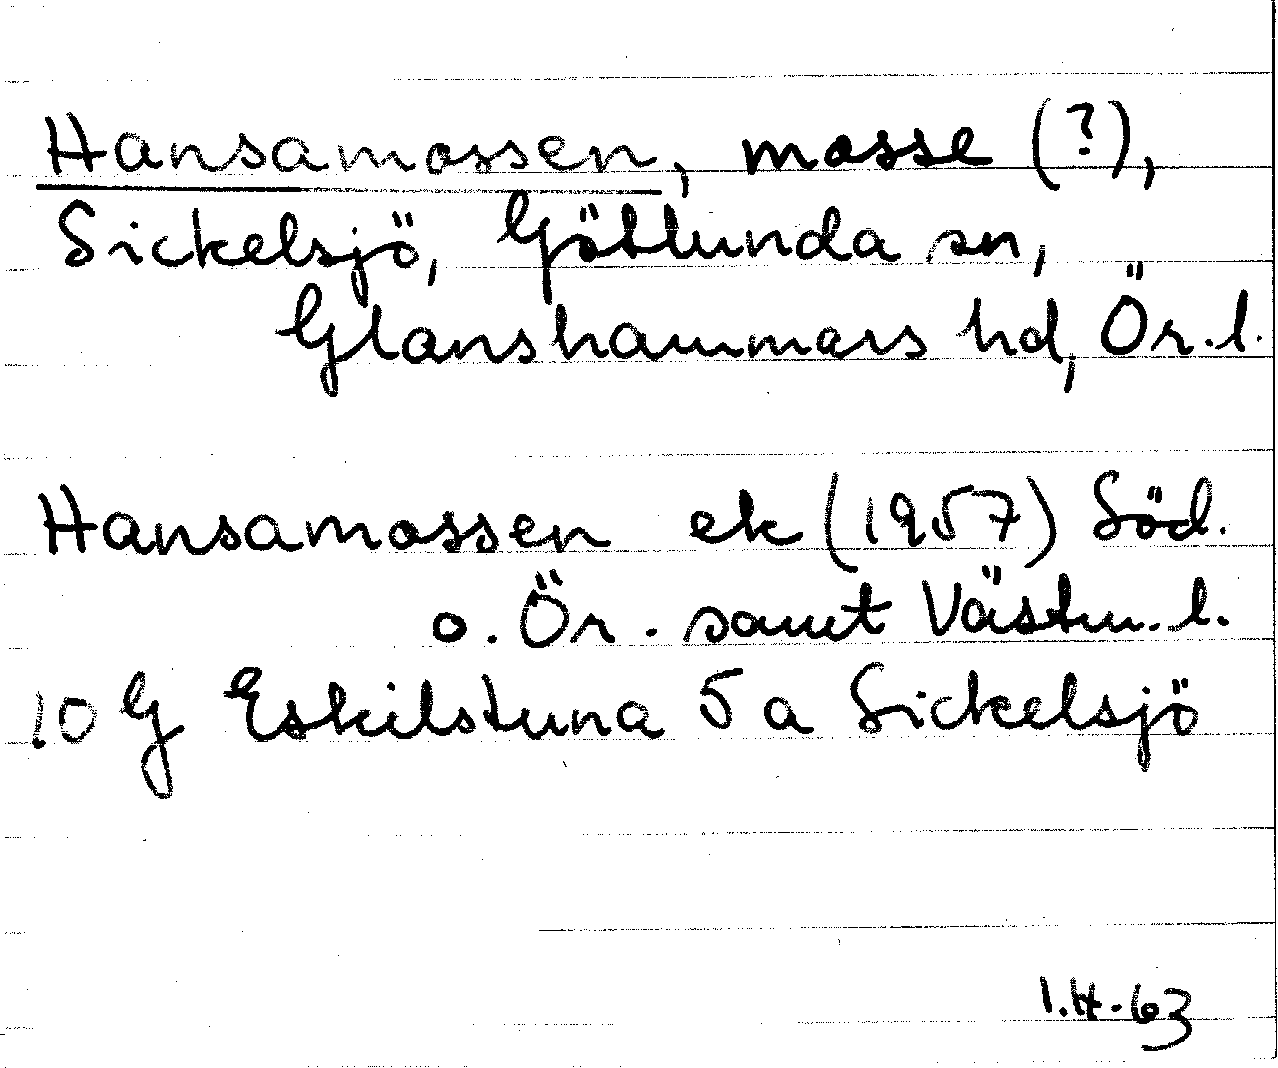 Hansamossen, mosse (?),
Sickelsjö, Götlunda sn,
Glanshammars hd, Ör.l.
Hansamossen ek (1957) Söd.
o. Ör. samt Västm. l.
10 G Eskilstuna 5 a Sickelsjö
I.H.63